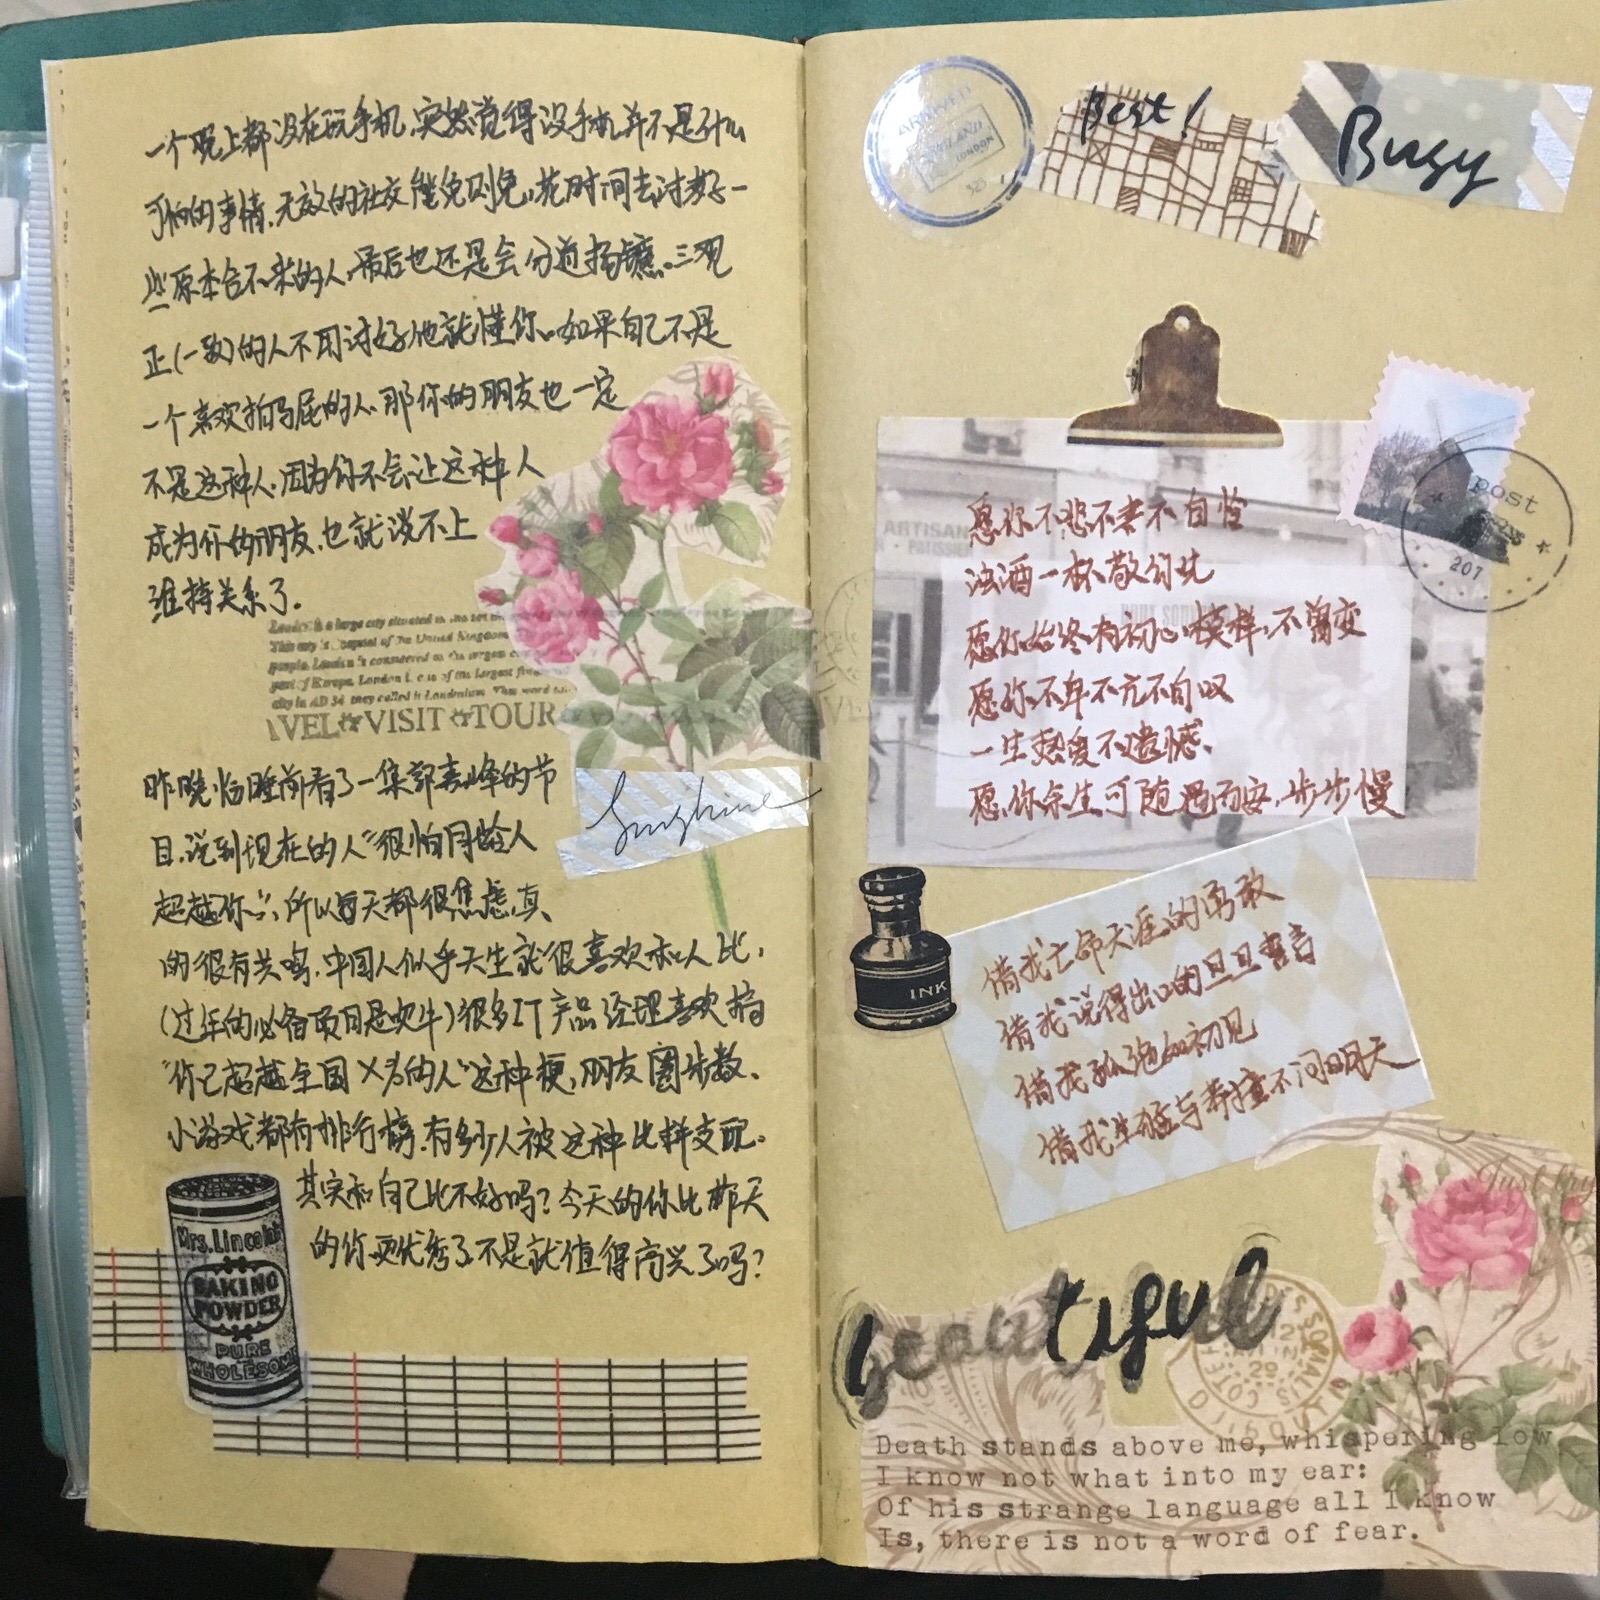 一个晚上都没在玩手机,突然觉得没手机并不是什么
可怕的事情,无效的社交能免则免,花时间去讨好一
些原本合不来的人,最后也还是会分道扬镳。三观
正(一致)的人不用讨好他就懂你。如果自己不是
一个喜欢拍马屁的人,那你的朋友也一定
不是这种人,因为你不会让这种人
成为你的朋友,也就谈不上
维持关系了。
London is a large city situated in
This city is capital of The United Kingdom
people. London is connected
part of Europe. London is one of the largest
city in AD 34 they called it Londinium. This word
VEL VISIT TOUR
昨晚临睡前看了一集郭麒麟的节
目,说到现在的人“很怕同龄人
超越你”,所以每天都很焦虑,真
的很有共鸣,中国人似乎天生就很喜欢和人比,
(过年的必备项目是吹牛)很多IT产品经理喜欢搞
“你已超越全国X%的人”这种梗,朋友圈步数、
小游戏都有排行榜,有多少人被这种比拼支配。
其实和自己比不好吗?今天的你比昨天
的你更优秀了,不是就值得高兴了吗?
Sunshine
Mrs. Lincoln's
BAKING
POWDER
PURE
WHOLESOME
ARRIVED
ENGLAND
LONDON
323
Best!
Busy
post
207
ARTISAN
PATISSIER
愿你不悲不喜不自怜
浊酒一杯敬过往
愿你始终有初心模样,不曾变
愿你不卑不亢不自叹
一生热爱不遗憾、
愿你余生可随遇而安,步步慢
INK
借我亡命天涯的勇敢
借我说得出口的旦旦誓言
借我孤绝如初见
借我生猛与莽撞不问明天
Just try
beautiful
Death stands above me, whispering low
I know not what into my ear:
Of his strange language all I know
Is, there is not a word of fear.